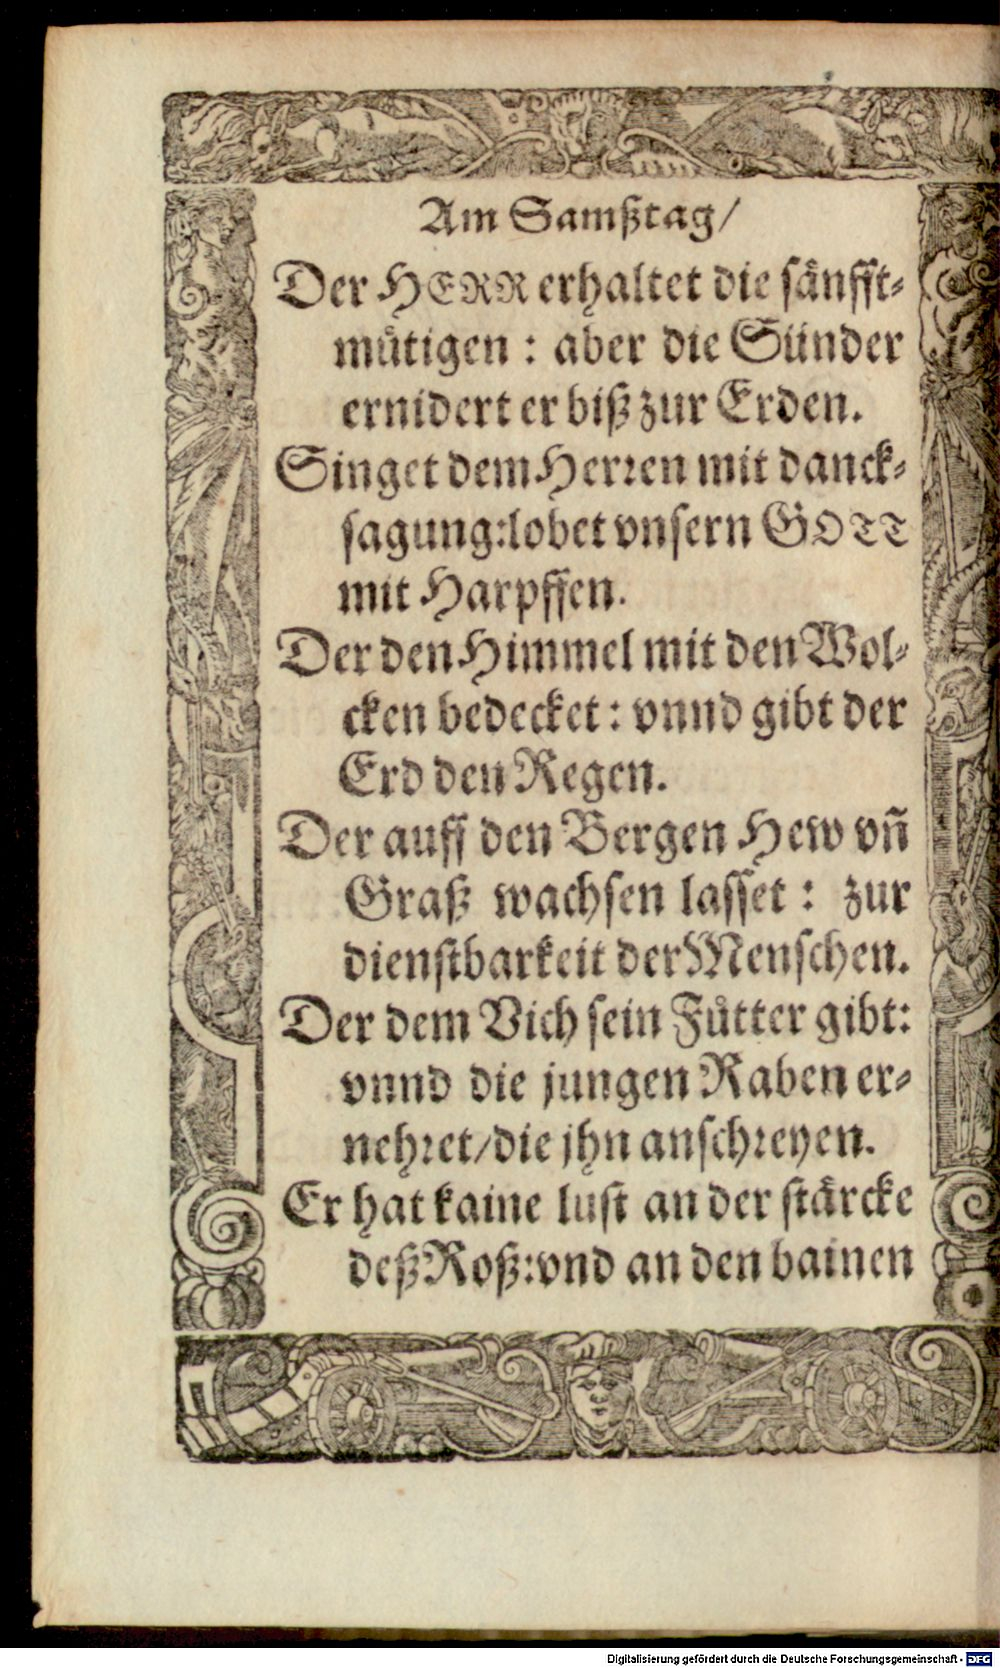 Am Samßtag/
Der HERR erhaltet die sänfft-
muͤtigen : aber die Sünder
ernidert er biß zur Erden.
Singet dem Herren mit danck-
sagung:lobet vnsern GOTT
mit Harpffen.
Der den Himmel mit den Wol-
cken bedecket : vnnd gibt der
Erd den Regen.
Der auff den Bergen Hew vñ
Graß wachsen lasset : zur
dienstbarkeit der Menschen.
Der dem Vich sein Fuͤtter gibt:
vnnd die jungen Raben er-
nehret/die jhn anschreyen.
Er hat kaine lust an der stärcke
deß Roß:vnd an den bainen
Digitalisierung gefördert durch die Deutsche Forschungsgemeinschaft - DFG